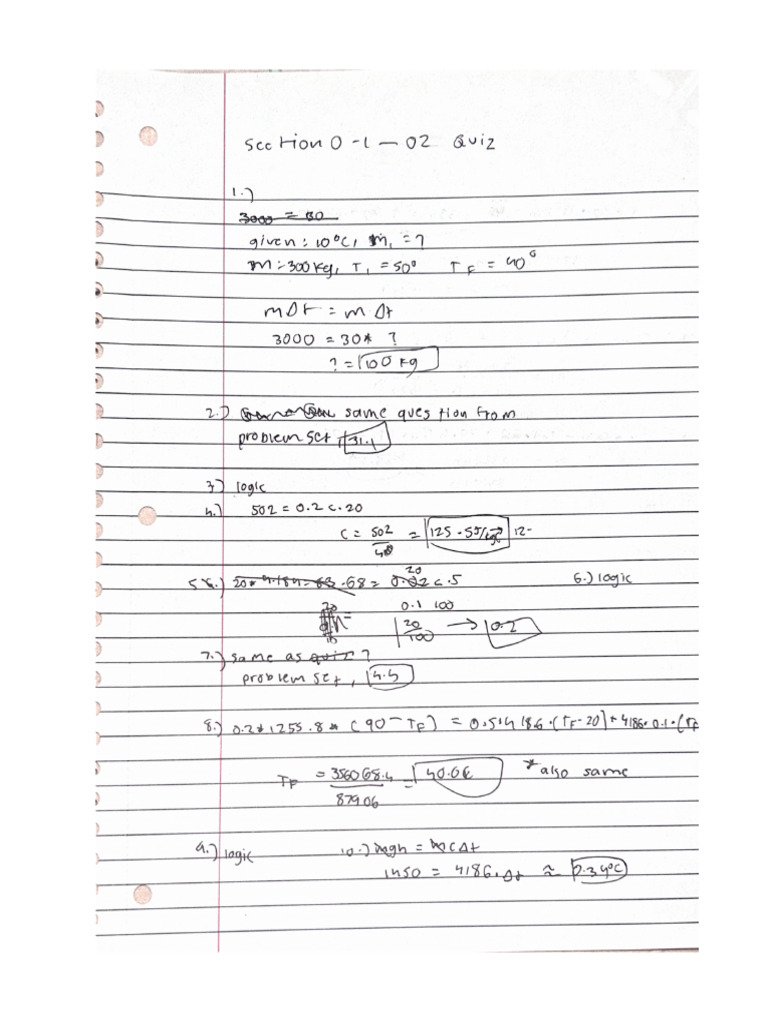 Section 0-1 — 02 Quiz
1.)
3000 = 30
given: 10°C, m₁ = ?
m = 300kg, T₁ = 50° T_F = 40°
mΔt = m Δt
3000 = 30* ?
? = 100 kg
2.) same question from
problem set, 31.1
3) logic
4.) 502 = 0.2 c. 20
c = 502/40 = 125.5 J/kgc
5.) .68 = c. 5 6.) logic
20
0.1 100
20/100 → 0.2
7.) same as quiz ?
problem set, 4.5
8.) 0.2*1255.8*(90-T_F) = 0.5.4186.(T_F-20)+4186.0.1.(T_F
T_F = 356068.4/87906 = 40.6 *also same
9.) logic 10.) mgh = mcΔt
1450 = 4186.Δt ≈ 0.34°C